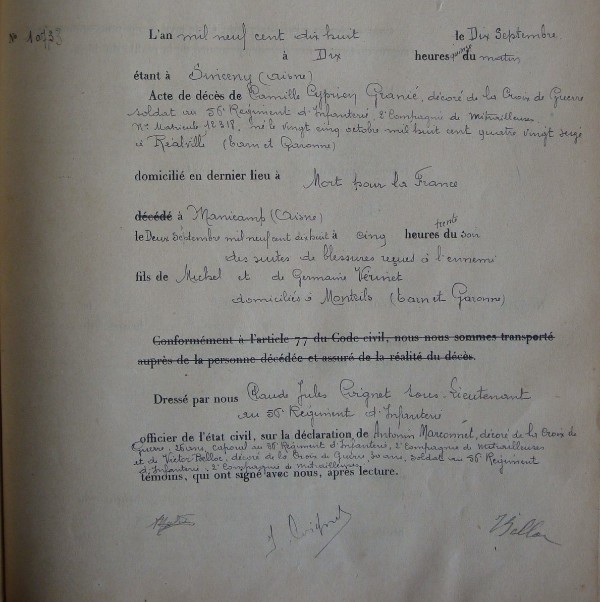 N° 1033
L'an mil neuf cent dix huit le Dix Septembre
à Dix heures quinze du matin
étant à Sinceny (Aisne)
Acte de décès de Camille Cyprien Granié, décoré de la Croix de Guerre
soldat au 56e Régiment d'Infanterie, 2e Compagnie de Mitrailleuses
N° Matricule 12318, né le vingt cinq octobre mil huit cent quatre vingt seize
à Réalville (Tarn et Garonne)
domicilié en dernier lieu à Mort pour la France
décédé à Manicamp (Aisne)
le Deux Septembre mil neuf cent dix huit à cinq heures trente du soir
des suites de blessures reçues à l'ennemi
fils de Michel et de Germaine
domiciliés à Monteils (Tarn et Garonne)
Conformément à l'article 77 du Code civil, nous nous sommes transporté
auprès de la personne décédée et assuré de la réalité du décès.
Dressé par nous Claude Jules Sous-Lieutenant
au 56e Régiment d'Infanterie
officier de l'état civil, sur la déclaration de Antonin Marconnet, décoré de la Croix de
Guerre, 26 ans, Caporal au 56e Régiment d'Infanterie, 2e Compagnie de Mitrailleuses
et de Victor Belloc, décoré de la Croix de Guerre ans, soldat au 56e Régiment
d'Infanterie, 2e Compagnie de Mitrailleuses
témoins, qui ont signé avec nous, après lecture.